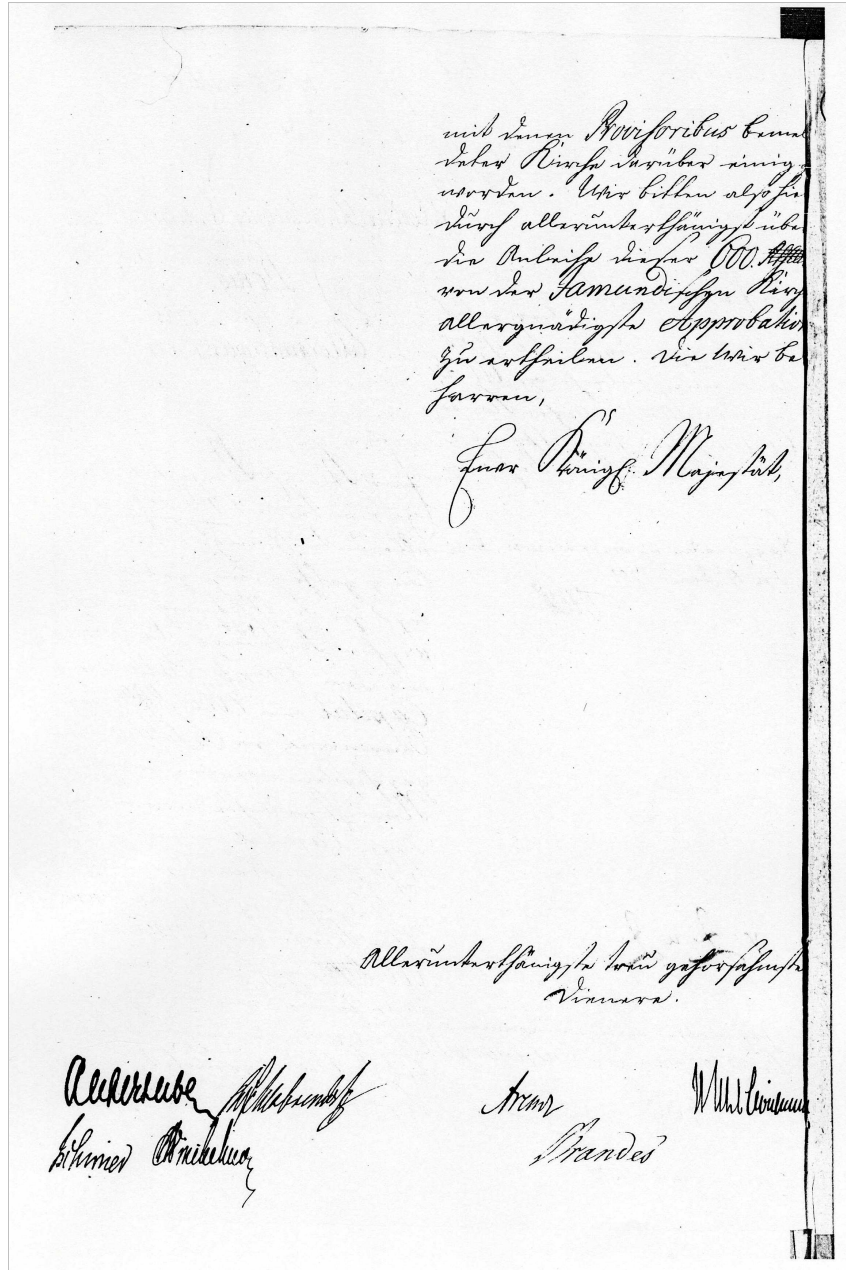 mit denen Provisoribus bemel
deter Kirche darüber einig
worden. Wir bitten also hie
durch allerunterthänigst über
die Anleihe dieser 600. Rthlr
von der Jamundischen Kirch
allergnädigste Approbation
zu ertheilen. Die Wir be
harren,
Euer Königl. Majestät,
Allerunterthänigste treu gehorsahmste
Dienere.
Arend
Brandes